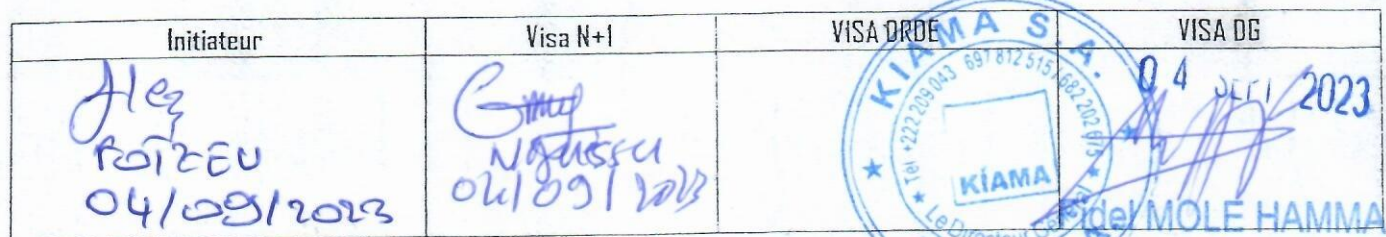 Initiateur
Visa N+1
VISA DRDE
VISA DG
Alex
FOTZEU
04/09/2023
04/09/2023
KIAMA S.A.
Tél +222 209 043 697 812 515 / 682 202 675
KIAMA
Le Directeur Général
04 SEPT 2023
Fidel MOLE HAMMA